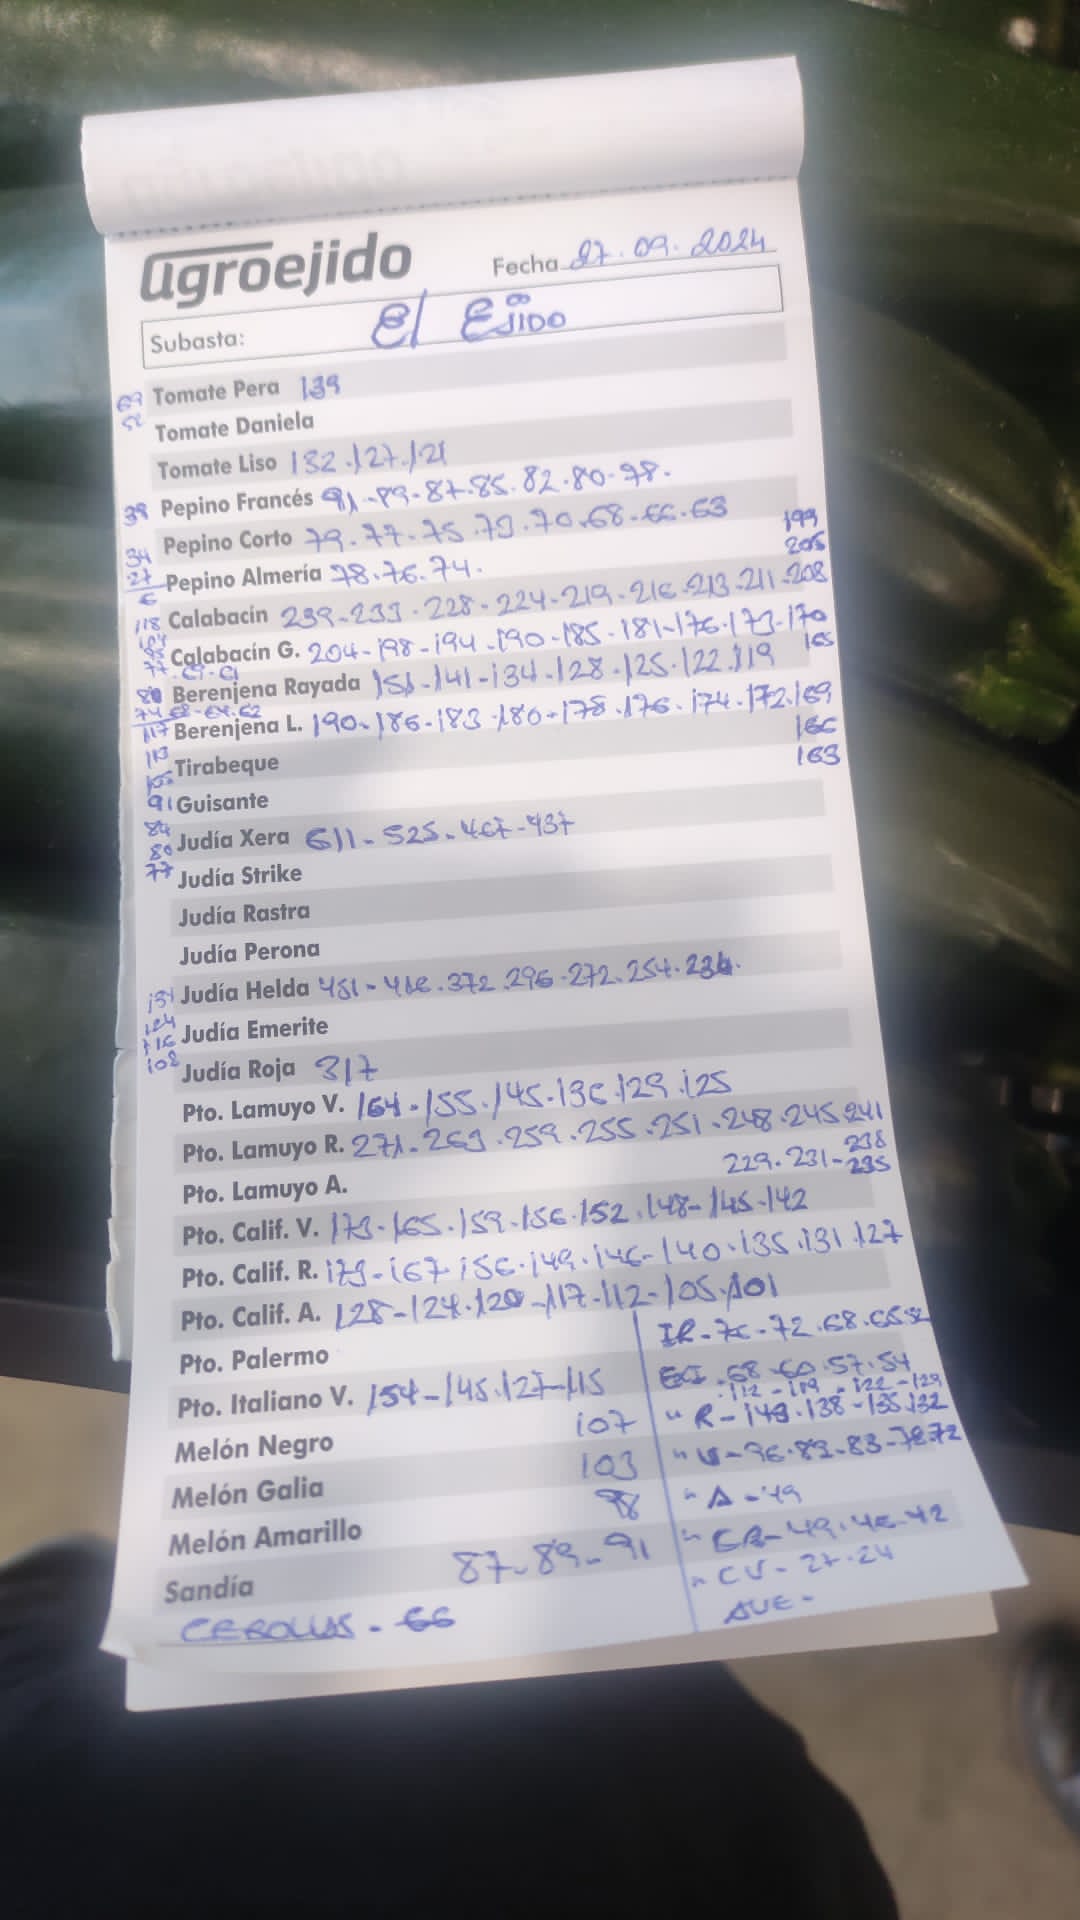 agroejido
Fecha 27.09.2024
Subasta: El EJIDO
69 Tomate Pera 139
52 Tomate Daniela
Tomate Liso 132.127.121
39 Pepino Francés 91-89-87.85.82.80.78.
34 Pepino Corto 79.77-75.73.70.68-66-63
199
27 Pepino Almería 78.76.74.
205
6
118 Calabacín 239-233.228-224-219-216-213-211-208
104
Calabacín G. 204-198-194-190-185.181-176.173-170
77.69-61
165
80 Berenjena Rayada 151-141-134-128.125.122.119
74.68-64.62
117 Berenjena L. 190-186-183.180-178.176.174-172.169
166
113
Tirabeque
163
91 Guisante
84
80 Judía Xera 611-525-467-437
77 Judía Strike
Judía Rastra
Judía Perona
131 Judía Helda 451-416.372.296-272.254.234.
124 Judía Emerite
116
108 Judía Roja 317
Pto. Lamuyo V. 164-155.145-136.129.125
Pto. Lamuyo R. 271-263.259.255.251-248.245.241
238
229.231-235
Pto. Lamuyo A.
Pto. Calif. V. 173-165.159.156.152.148-145-142
Pto. Calif. R. 173-167.156.149.146-140.135.131.127
Pto. Calif. A. 128-124.120-117-112-105.101
IR-76-72.68.65.52
Pto. Palermo
.68-60.57.54
.112-119-122-129
Pto. Italiano V. 154-145.127-115
" R-143.138-135.132
Melón Negro 107
" V-96.89-83-78.72
Melón Galia 103
" A-49
Melón Amarillo 98
" CR-49.46-42
Sandía 87-89-91
" CV-27.24
AVE-
CEBOLLAS-66